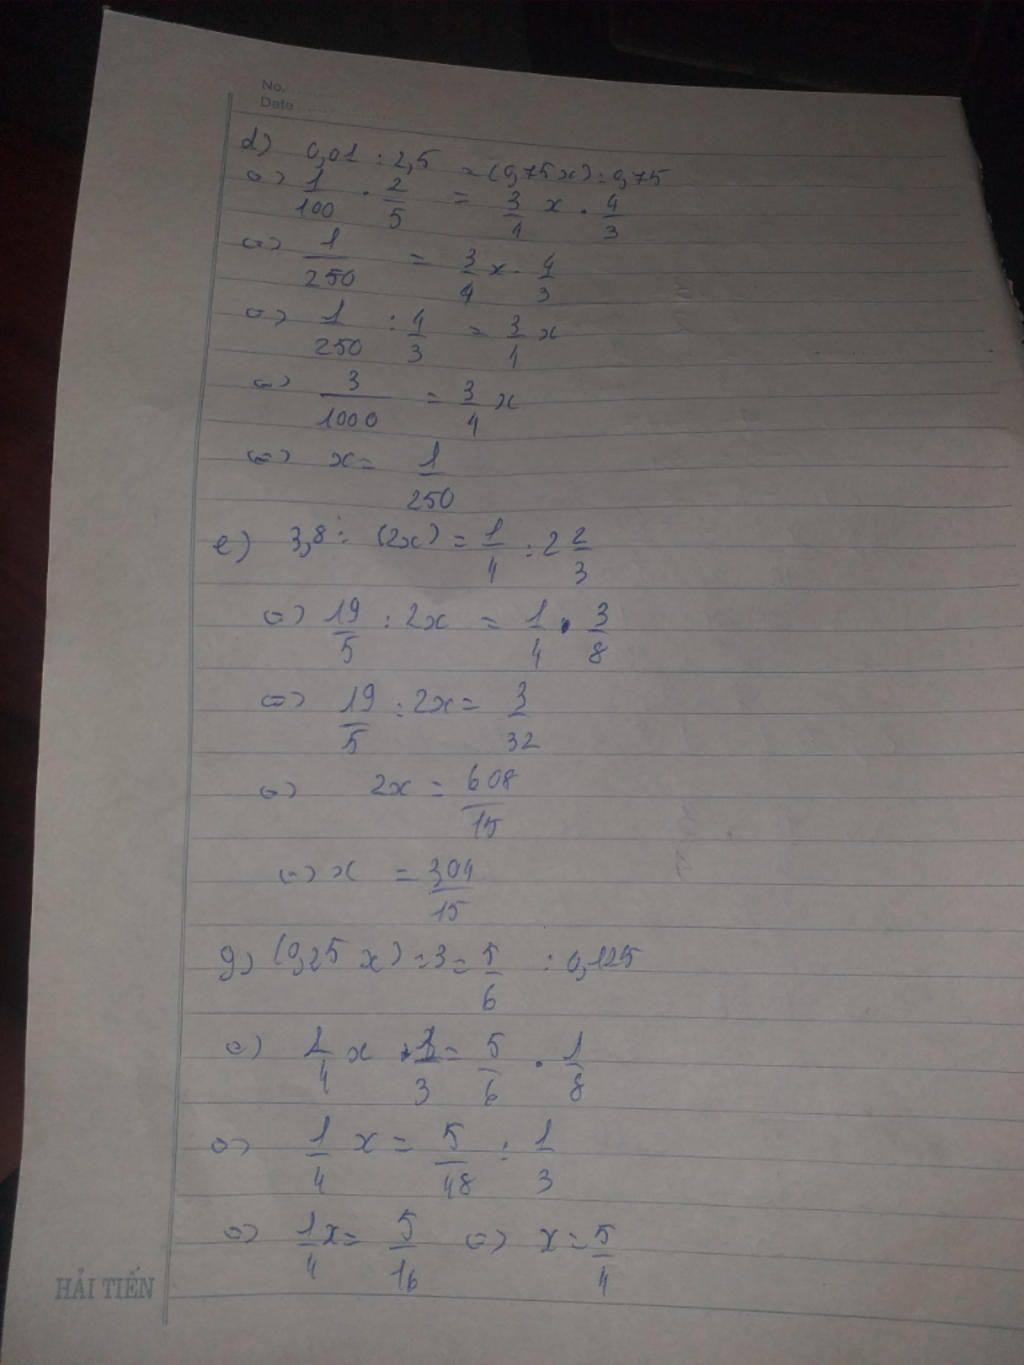 No.
Date
d) 0,01 : 2,5 = (0,75x) : 0,75
=> 1/100 . 2/5 = 3/4 x . 4/3
=> 1/250 = 3/4 x . 4/3
=> 1/250 : 4/3 = 3/4 x
=> 3/1000 = 3/4 x
=> x = 1/250
e) 3,8 : (2x) = 1/4 : 2 2/3
=> 19/5 : 2x = 1/4 . 3/8
=> 19/5 : 2x = 3/32
=> 2x = 608/15
=> x = 304/15
g) (0,25 x) : 3 = 5/6 : 0,125
=> 1/4 x . 1/3 = 5/6 . 1/8
=> 1/4 x = 5/48 : 1/3
=> 1/4 x = 5/16 => x = 5/4
HẢI TIẾN